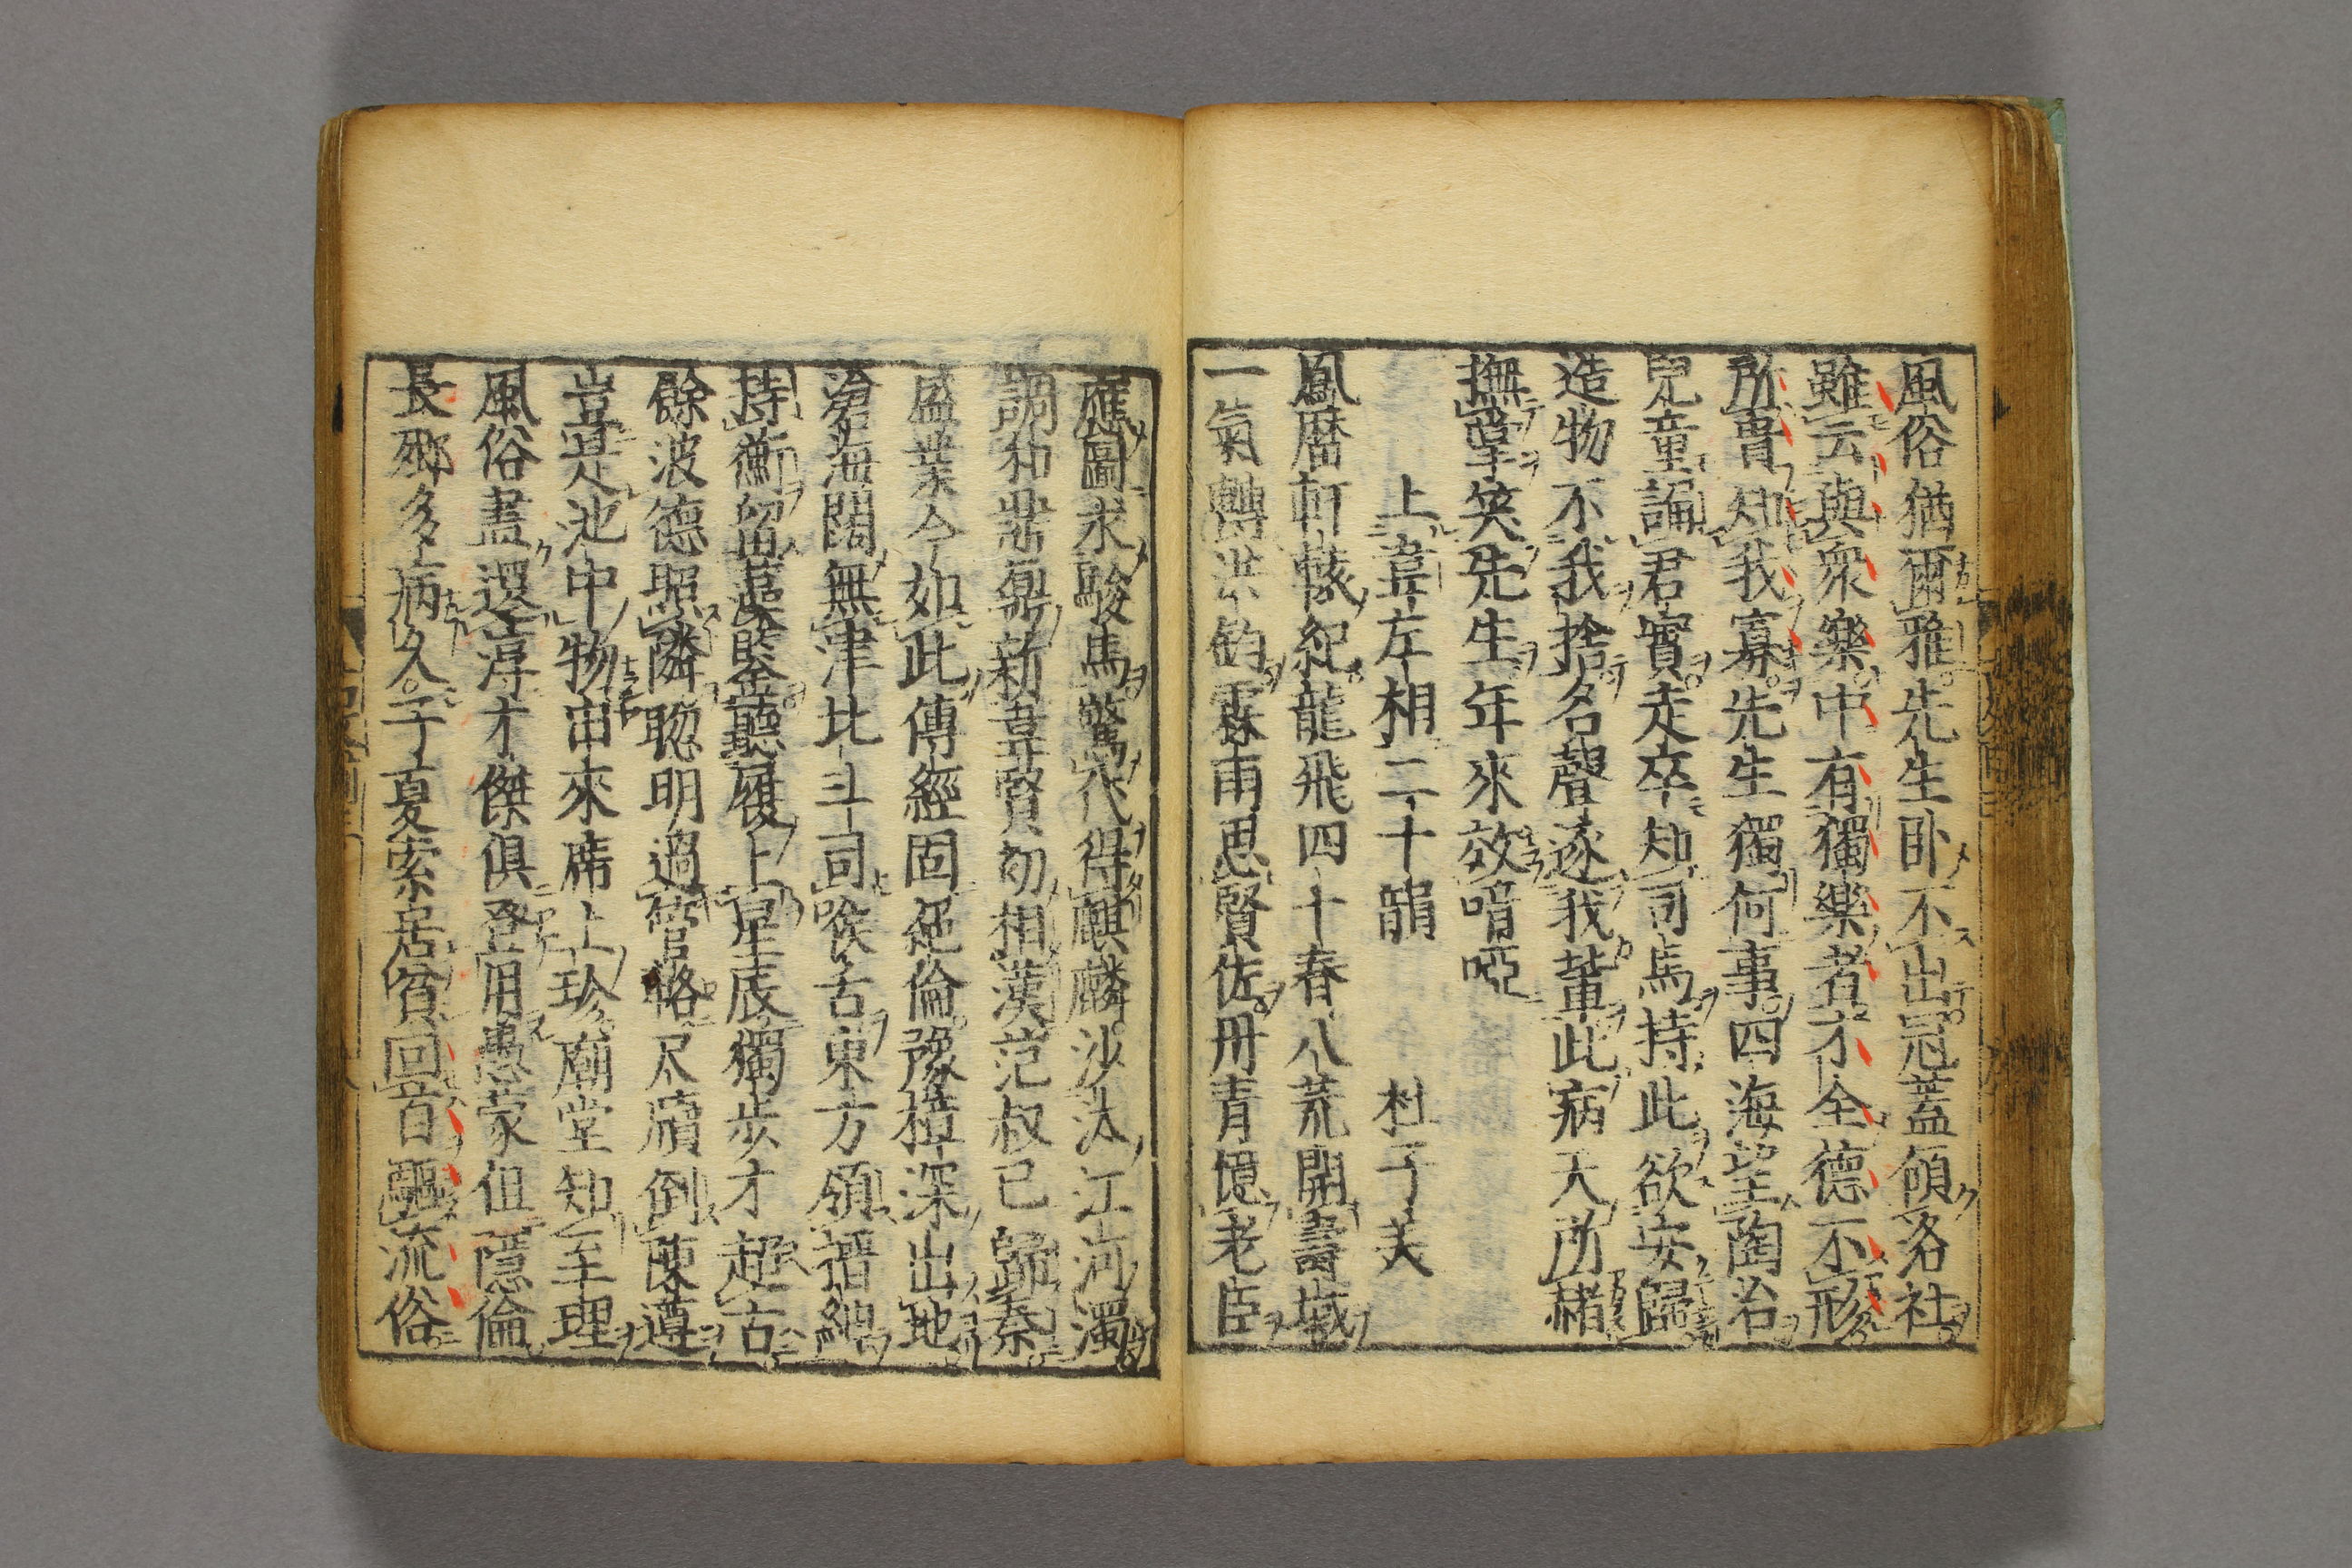 風俗猶爾雅先生卧不出冠蓋傾洛社
雖云與衆樂中有獨樂者才全德不形
所貴知我寡先生獨何事四海望陶冶
兒童誦君實走卒知司馬持此欲安歸
造物不我捨名聲逐我輩此病天所赭
撫掌笑先生年來效喑啞
上韋左相二十韻 杜子美
鳳曆軒轅紀龍飛四十春八荒開壽域
一氣轉洪鈞霖雨思賢佐丹青憶老臣
應圖求駿馬驚代得麒麟沙汰江河濁
調和鼎鼐新韋賢初相漢范叔已歸秦
盛業今如此傳經固絕倫豫樟深出地
滄海闊無津北斗司喉舌東方領搢紳
持衡留藻鑒聽履上星辰獨步才超古
餘波德照隣聦明過管輅尺牘倒陳遵
豈是池中物由來席上珍廟堂知至理
風俗盡還淳才傑俱登用愚蒙但隱倫
長卿多病久子夏索居貧回首驅流俗